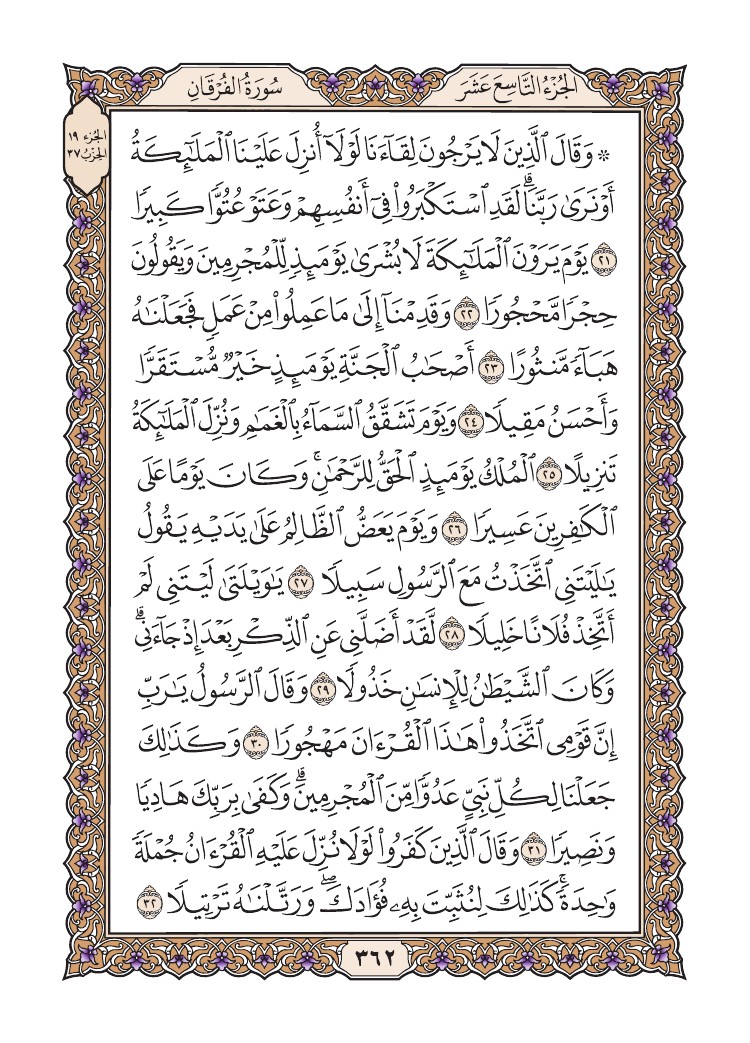 الجُزْءُ التَّاسِعَ عَشَرَ
سُورَةُ الفُرْقَانِ
الجزء ١٩
الحِزْب ٣٧
۞ وَقَالَ ٱلَّذِينَ لَا يَرْجُونَ لِقَآءَنَا لَوْلَآ أُنزِلَ عَلَيْنَا ٱلْمَلَـٰٓئِكَةُ
أَوْ نَرَىٰ رَبَّنَا ۗ لَقَدِ ٱسْتَكْبَرُوا۟ فِىٓ أَنفُسِهِمْ وَعَتَوْ عُتُوًّا كَبِيرًا
٢١ يَوْمَ يَرَوْنَ ٱلْمَلَـٰٓئِكَةَ لَا بُشْرَىٰ يَوْمَئِذٍ لِّلْمُجْرِمِينَ وَيَقُولُونَ
حِجْرًا مَّحْجُورًا ٢٢ وَقَدِمْنَآ إِلَىٰ مَا عَمِلُوا۟ مِنْ عَمَلٍ فَجَعَلْنَـٰهُ
هَبَآءً مَّنثُورًا ٢٣ أَصْحَـٰبُ ٱلْجَنَّةِ يَوْمَئِذٍ خَيْرٌ مُّسْتَقَرًّا
وَأَحْسَنُ مَقِيلًا ٢٤ وَيَوْمَ تَشَقَّقُ ٱلسَّمَآءُ بِٱلْغَمَـٰمِ وَنُزِّلَ ٱلْمَلَـٰٓئِكَةُ
تَنزِيلًا ٢٥ ٱلْمُلْكُ يَوْمَئِذٍ ٱلْحَقُّ لِلرَّحْمَـٰنِ ۚ وَكَانَ يَوْمًا عَلَى
ٱلْكَـٰفِرِينَ عَسِيرًا ٢٦ وَيَوْمَ يَعَضُّ ٱلظَّالِمُ عَلَىٰ يَدَيْهِ يَقُولُ
يَـٰلَيْتَنِى ٱتَّخَذْتُ مَعَ ٱلرَّسُولِ سَبِيلًا ٢٧ يَـٰوَيْلَتَىٰ لَيْتَنِى لَمْ
أَتَّخِذْ فُلَانًا خَلِيلًا ٢٨ لَّقَدْ أَضَلَّنِى عَنِ ٱلذِّكْرِ بَعْدَ إِذْ جَآءَنِى ۗ
وَكَانَ ٱلشَّيْطَـٰنُ لِلْإِنسَـٰنِ خَذُولًا ٢٩ وَقَالَ ٱلرَّسُولُ يَـٰرَبِّ
إِنَّ قَوْمِى ٱتَّخَذُوا۟ هَـٰذَا ٱلْقُرْءَانَ مَهْجُورًا ٣٠ وَكَذَٰلِكَ
جَعَلْنَا لِكُلِّ نَبِىٍّ عَدُوًّا مِّنَ ٱلْمُجْرِمِينَ ۗ وَكَفَىٰ بِرَبِّكَ هَادِيًا
وَنَصِيرًا ٣١ وَقَالَ ٱلَّذِينَ كَفَرُوا۟ لَوْلَا نُزِّلَ عَلَيْهِ ٱلْقُرْءَانُ جُمْلَةً
وَٰحِدَةً ۚ كَذَٰلِكَ لِنُثَبِّتَ بِهِۦ فُؤَادَكَ ۖ وَرَتَّلْنَـٰهُ تَرْتِيلًا ٣٢
٣٦٢